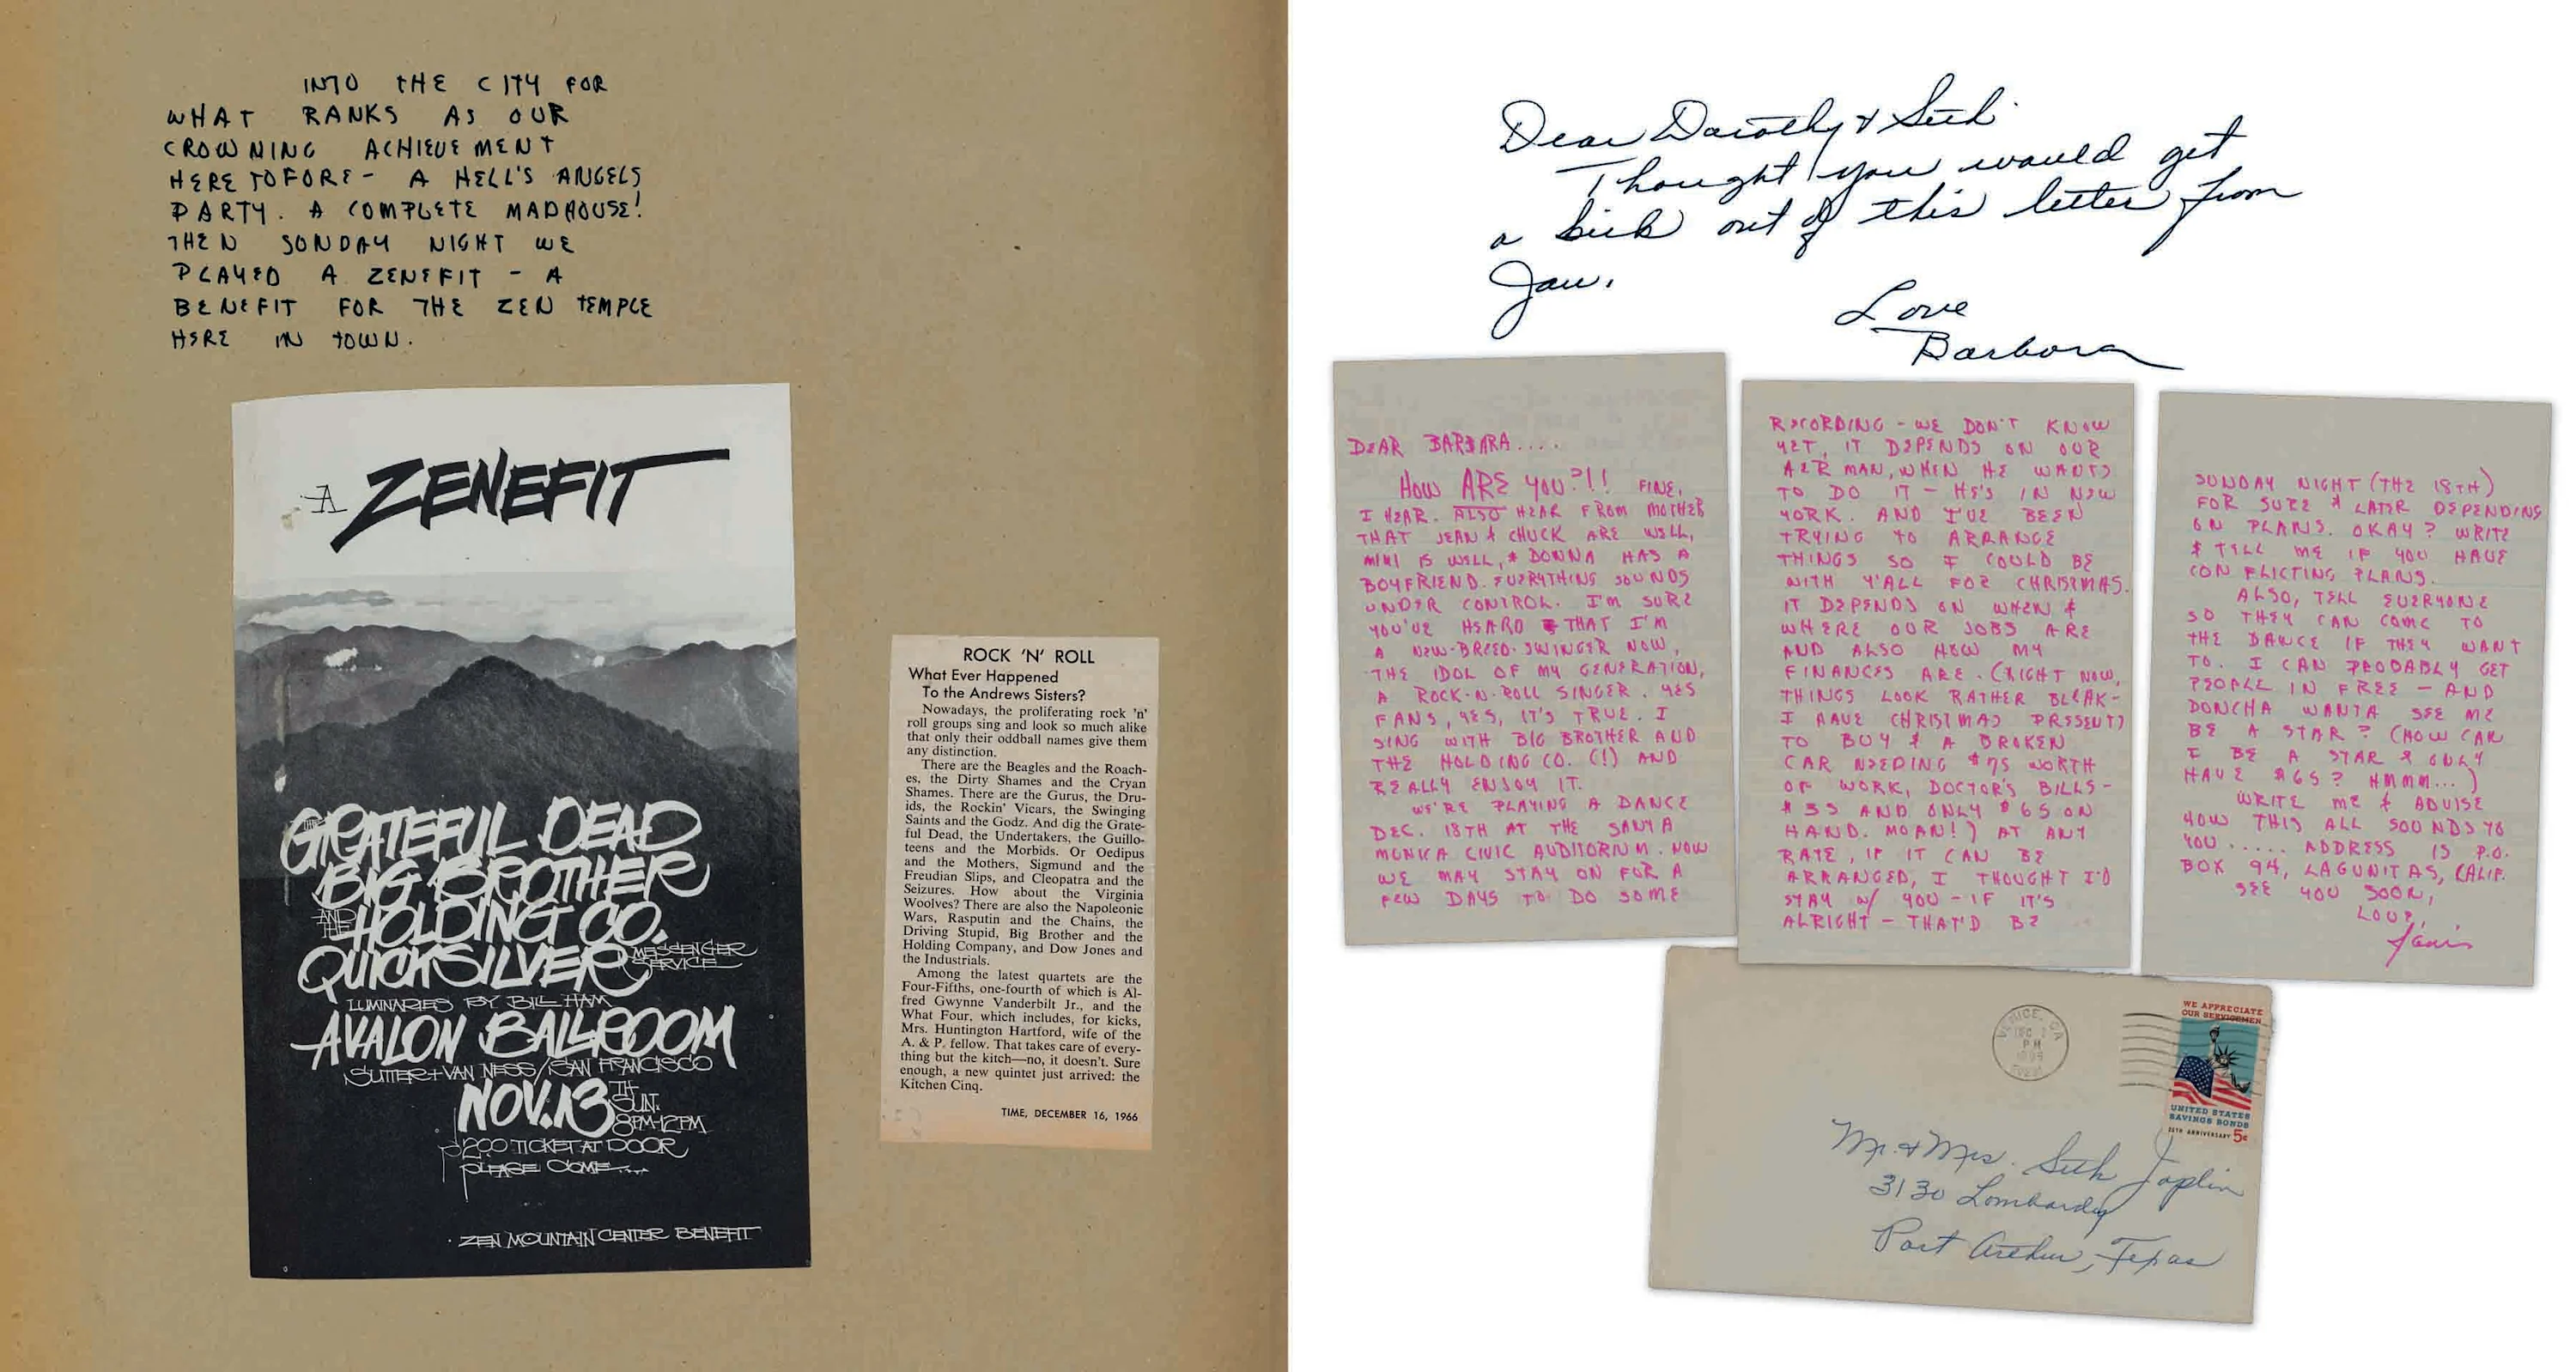 INTO THE CITY FOR
WHAT RANKS AS OUR
CROWNING ACHIEVEMENT
HERETOFORE - A HELL'S ANGELS
PARTY. A COMPLETE MADHOUSE!
THEN SUNDAY NIGHT WE
PLAYED A ZENEFIT - A
BENEFIT FOR THE ZEN TEMPLE
HERE IN TOWN.
A ZENEFIT
THE GRATEFUL DEAD
BIG BROTHER
AND THE HOLDING CO.
QUICKSILVER MESSENGER SERVICE
LUMINARIES BY BILL HAM
AVALON BALLROOM
SUTTER + VAN NESS / SAN FRANCISCO
NOV. 13TH SUN.
8PM-12PM
$2.00 TICKET AT DOOR
PLEASE COME....
. ZEN MOUNTAIN CENTER BENEFIT
ROCK 'N' ROLL
What Ever Happened
To the Andrews Sisters?
Nowadays, the proliferating rock 'n'
roll groups sing and look so much alike
that only their oddball names give them
any distinction.
There are the Beagles and the Roach-
es, the Dirty Shames and the Cryan
Shames. There are the Gurus, the Dru-
ids, the Rockin' Vicars, the Swinging
Saints and the Godz. And dig the Grate-
ful Dead, the Undertakers, the Guillo-
teens and the Morbids. Or Oedipus
and the Mothers, Sigmund and the
Freudian Slips, and Cleopatra and the
Seizures. How about the Virginia
Woolves? There are also the Napoleonic
Wars, Rasputin and the Chains, the
Driving Stupid, Big Brother and the
Holding Company, and Dow Jones and
the Industrials.
Among the latest quartets are the
Four-Fifths, one-fourth of which is Al-
fred Gwynne Vanderbilt Jr., and the
What Four, which includes, for kicks,
Mrs. Huntington Hartford, wife of the
A. & P. fellow. That takes care of every-
thing but the kitch—no, it doesn't. Sure
enough, a new quintet just arrived: the
Kitchen Cinq.
TIME, DECEMBER 16, 1966
Dear Dorothy & Seth
Thought you would get
a kick out of this letter from
Jan.
Love
Barbara
DEAR BARBARA....
HOW ARE YOU?!! FINE,
I HEAR. ALSO HEAR FROM MOTHER
THAT JEAN & CHUCK ARE WELL,
MIMI IS WELL, & DONNA HAS A
BOYFRIEND. EVERYTHING SOUNDS
UNDER CONTROL. I'M SURE
YOU'VE HEARD THAT I'M
A NEW-BREED-SWINGER NOW,
THE IDOL OF MY GENERATION,
A ROCK-N-ROLL SINGER. YES
FANS, YES, IT'S TRUE. I
SING WITH BIG BROTHER AND
THE HOLDING CO. (!) AND
REALLY ENJOY IT.
WE'RE PLAYING A DANCE
DEC. 18TH AT THE SANTA
MONICA CIVIC AUDITORIUM. NOW
WE MAY STAY ON FOR A
FEW DAYS TO DO SOME
RECORDING - WE DON'T KNOW
YET, IT DEPENDS ON OUR
A&R MAN, WHEN HE WANTS
TO DO IT - HE'S IN NEW
YORK. AND I'VE BEEN
TRYING TO ARRANGE
THINGS SO I COULD BE
WITH Y'ALL FOR CHRISTMAS.
IT DEPENDS ON WHEN &
WHERE OUR JOBS ARE
AND ALSO HOW MY
FINANCES ARE. (RIGHT NOW,
THINGS LOOK RATHER BLEAK-
I HAVE CHRISTMAS PRESENTS
TO BUY & A BROKEN
CAR NEEDING $75 WORTH
OF WORK, DOCTOR'S BILLS -
$35 AND ONLY $65 ON
HAND. MOAN!) AT ANY
RATE, IF IT CAN BE
ARRANGED, I THOUGHT I'D
STAY W/ YOU - IF IT'S
ALRIGHT - THAT'D BE
SUNDAY NIGHT (THE 18TH)
FOR SURE & LATER DEPENDING
ON PLANS. OKAY? WRITE
& TELL ME IF YOU HAVE
CONFLICTING PLANS.
ALSO, TELL EVERYONE
SO THEY CAN COME TO
THE DANCE IF THEY WANT
TO. I CAN PROBABLY GET
PEOPLE IN FREE - AND
DONCHA WANTA SEE ME
BE A STAR? (HOW CAN
I BE A STAR & ONLY
HAVE $65? HMMM...)
WRITE ME & ADVISE
HOW THIS ALL SOUNDS TO
YOU ..... ADDRESS IS P.O.
BOX 94, LAGUNITAS, CALIF.
SEE YOU SOON,
LOVE,
Janis
VENICE, CA
DEC
PM
WE APPRECIATE
OUR SERVICEMEN
UNITED STATES
SAVINGS BONDS
25TH ANNIVERSARY 5c
Mr. & Mrs. Seth Joplin
3130 Lombardy
Port Arthur, Texas